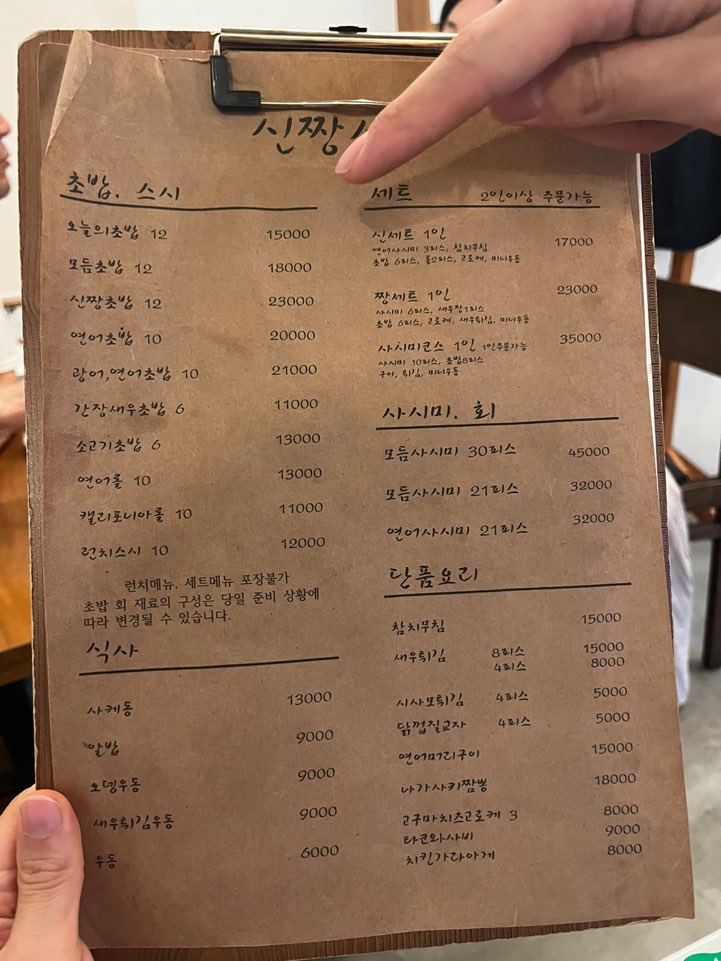 신짱
초밥. 스시
오늘의초밥 12 15000
모듬초밥 12 18000
신짱초밥 12 23000
연어초밥 10 20000
광어,연어초밥 10 21000
간장새우초밥 6 11000
소고기초밥 6 13000
연어롤 10 13000
캘리포니아롤 10 11000
런치스시 10 12000
런치메뉴. 세트메뉴 포장불가
초밥 회 재료의 구성은 당일 준비 상황에
따라 변경될 수 있습니다.
식사
사케동 13000
알밥 9000
오뎅우동 9000
새우튀김우동 9000
우동 6000
세트 2인이상 주문가능
신세트 1인 17000
연어사시미 3피스, 참치무침
초밥 6피스, 롤2피스, 고로케, 미니우동
짱세트 1인 23000
사시미 6피스, 새우장1피스
초밥 6피스, 고로케, 새우튀김, 미니우동
사시미코스 1인 1인주문가능 35000
사시미 10피스, 초밥8피스
구이, 튀김, 미니우동
사시미. 회
모듬사시미 30피스 45000
모듬사시미 21피스 32000
연어사시미 21피스 32000
단품요리
참치무침 15000
새우튀김 8피스 15000
4피스 8000
시사모튀김 4피스 5000
닭껍질교자 4피스 5000
연어머리구이 15000
나가사키짬뽕 18000
고구마치즈고로케 3 8000
타코와사비 9000
치킨가라아게 8000